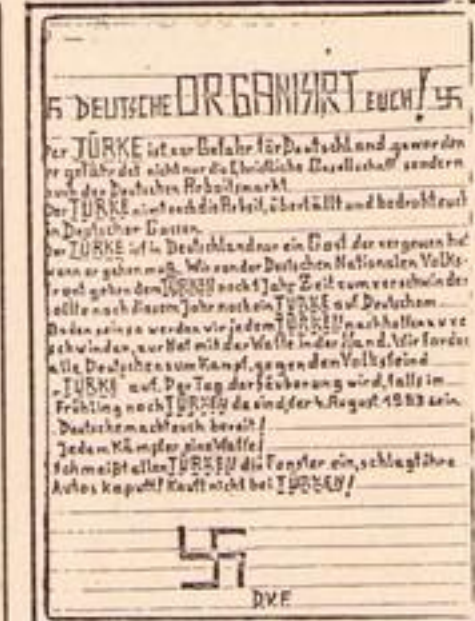 DEUTSCHE ORGANISIRT EUCH!
Der TÜRKE ist zur Gefahr für Deutschland geworden
er gefährdet nicht nur die Christliche Gesellschaft sondern
auch den Deutschen Arbeitsmarkt.
Der TÜRKE nimt euch die Arbeit, überfällt und bedroht euch
in Deutscher Gassen.
Der TÜRKE ist in Deutschland nur ein Gast der vergessen hat
wann er gehen muß. Wir von der Deutschen Nationalen Volks-
front geben dem TÜRKEN noch 1 Jahr Zeit zum verschwinden
sollte nach diesem Jahr noch ein TÜRKE auf Deutschem
Boden sein so werden wir jedem TÜRKEN nachhelfen zu ve
schwinden, zur Not mit der Waffe in der Hand. Wir fordern
alle Deutschen zum Kampf, gegen den Volksfeind
"TÜRKE" auf. Der Tag der Säuberung wird, falls im
Frühling noch TÜRKEN da sind, der 4. August 1983 sein.
Deutsche macht euch bereit!
Jedem Kämpfer eine Waffe!
Schmeißt allen TÜRKEN die Fenster ein, schlagt ihre
Autos kaputt! Kauft nicht bei TÜRKEN!
D.V.F.